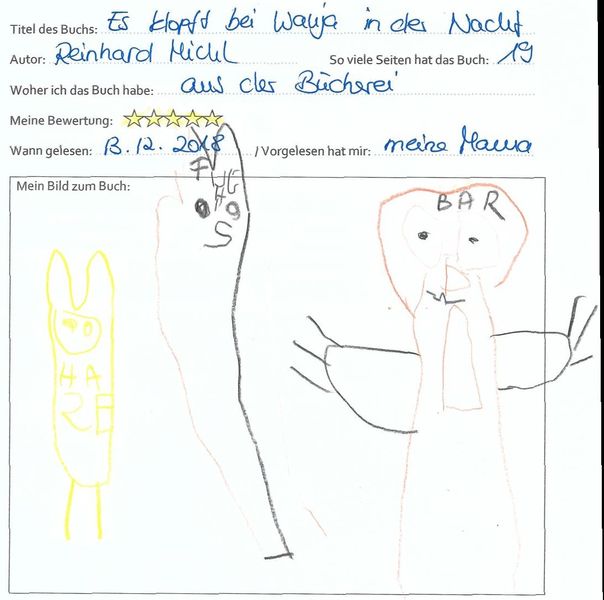 Titel des Buchs: Es klopft bei Wanja in der Nacht
Autor: Reinhard Michl So viele Seiten hat das Buch: 19
Woher ich das Buch habe: aus der Bücherei
Meine Bewertung:
Wann gelesen: 13.12.2018 / Vorgelesen hat mir: meine Mama
Mein Bild zum Buch:
BAR
HA
RE